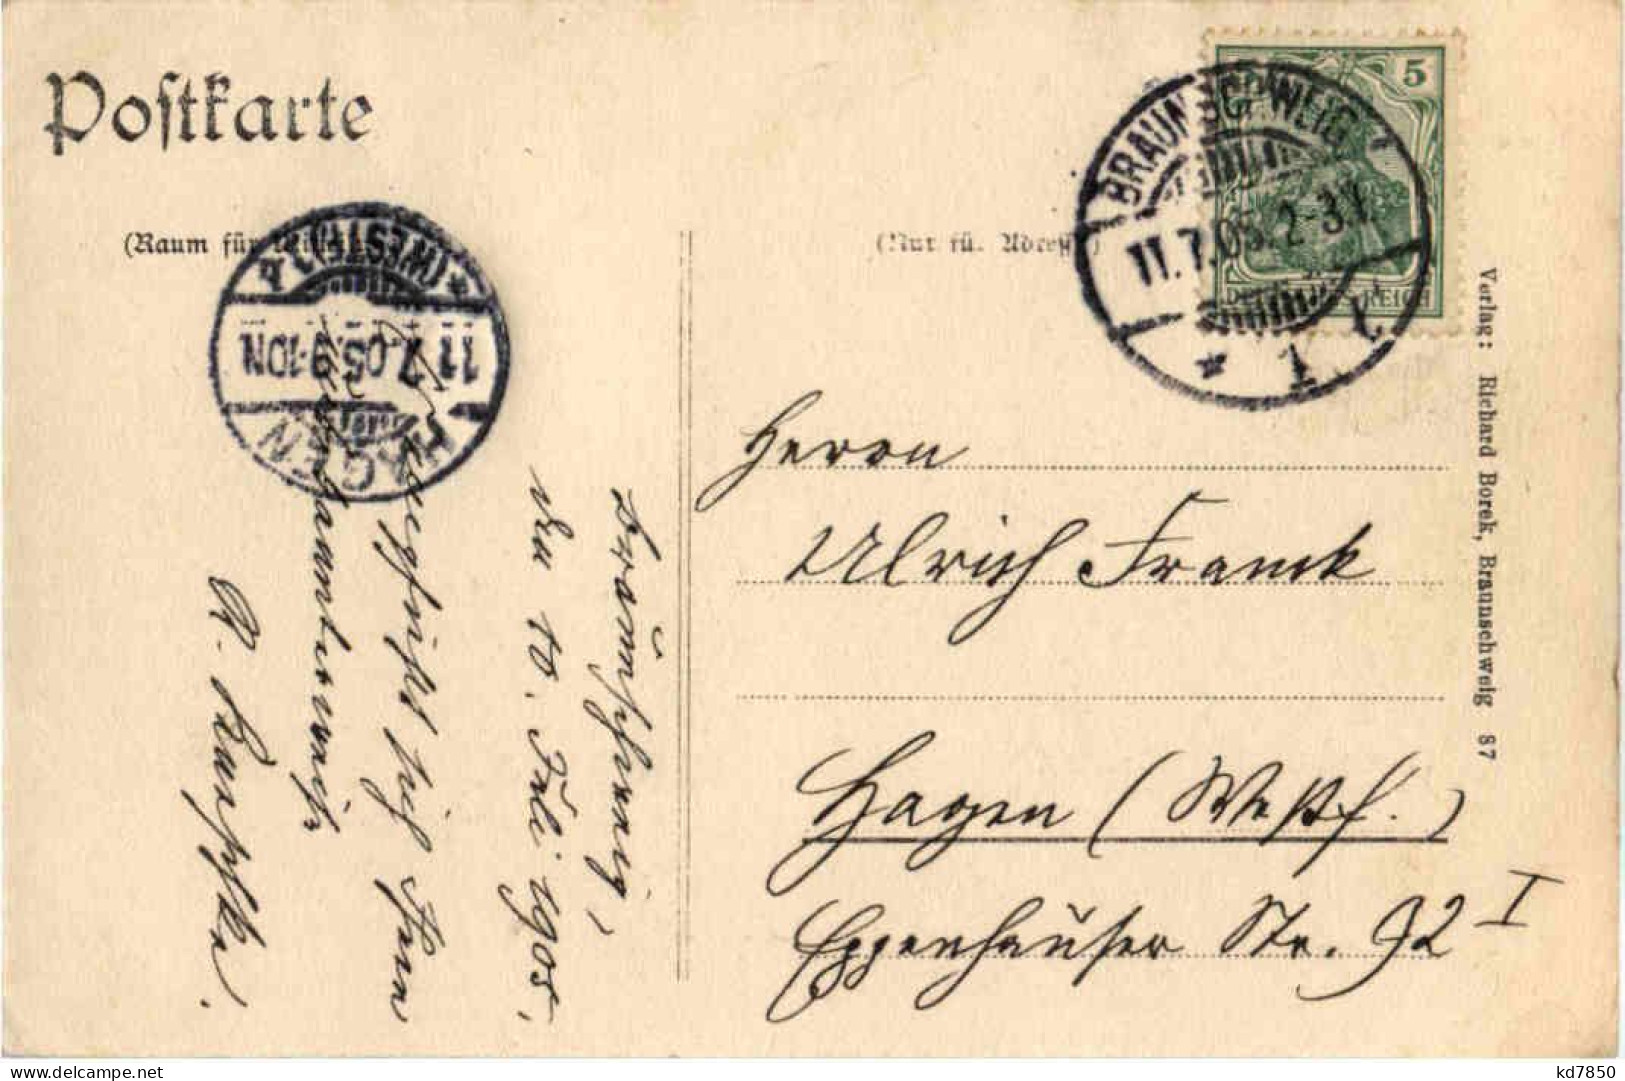 Postkarte
(Raum für
(Nur für Adresse)
5
DEUTSCHES REICH
BRAUNSCHWEIG
11.7.05. 2-3 N.
* 1 *
HAGEN
11.7.05. 9-10N.
* (WESTF.) 1
Verlag: Richard Borek, Braunschweig 87
Herrn
Ulrich Franck
Hagen (Westf.)
Eppenhauser Str. 92 I
Braunschweig,
den 10. Juli 1905.